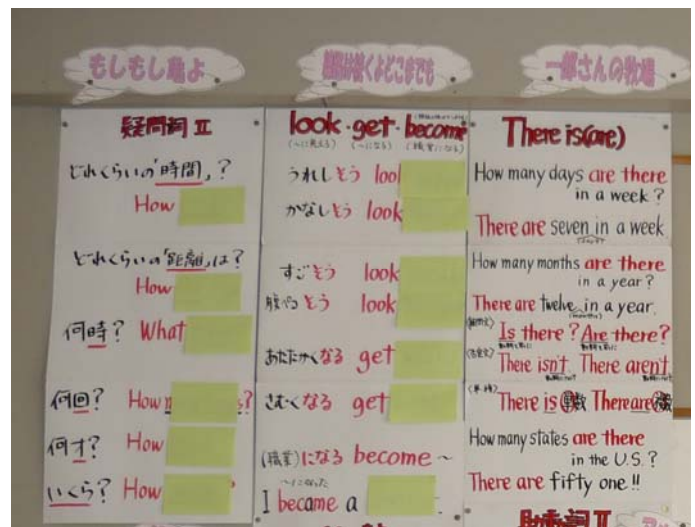 もしもし亀よ
線路は続くよどこまでも
一郎さんの牧場
疑問詞 II
どれくらいの「時間」?
How
どれくらいの「距離」は?
How
何時? What
何回? How
何才? How
いくら? How
look・get・become
(〜に見える) (〜になる) (職業になる)
うれしそう loo
かなしそう look
すごそう look
腹ぺこそう look
あたたかくなる get
さむくなる get
(職業)になる become 〜
〜になった
I became a
There is(are)
How many days are there
in a week?
There are seven in a week
(days)
How many months are there
in a year?
There are twelve in a year.
(months)
(疑問文) Is there? Are there?
(否定文) There isn't There aren't
There is 単数 There are 複数
How many states are there
in the U.S.?
There are fifty one!!
助動詞 II